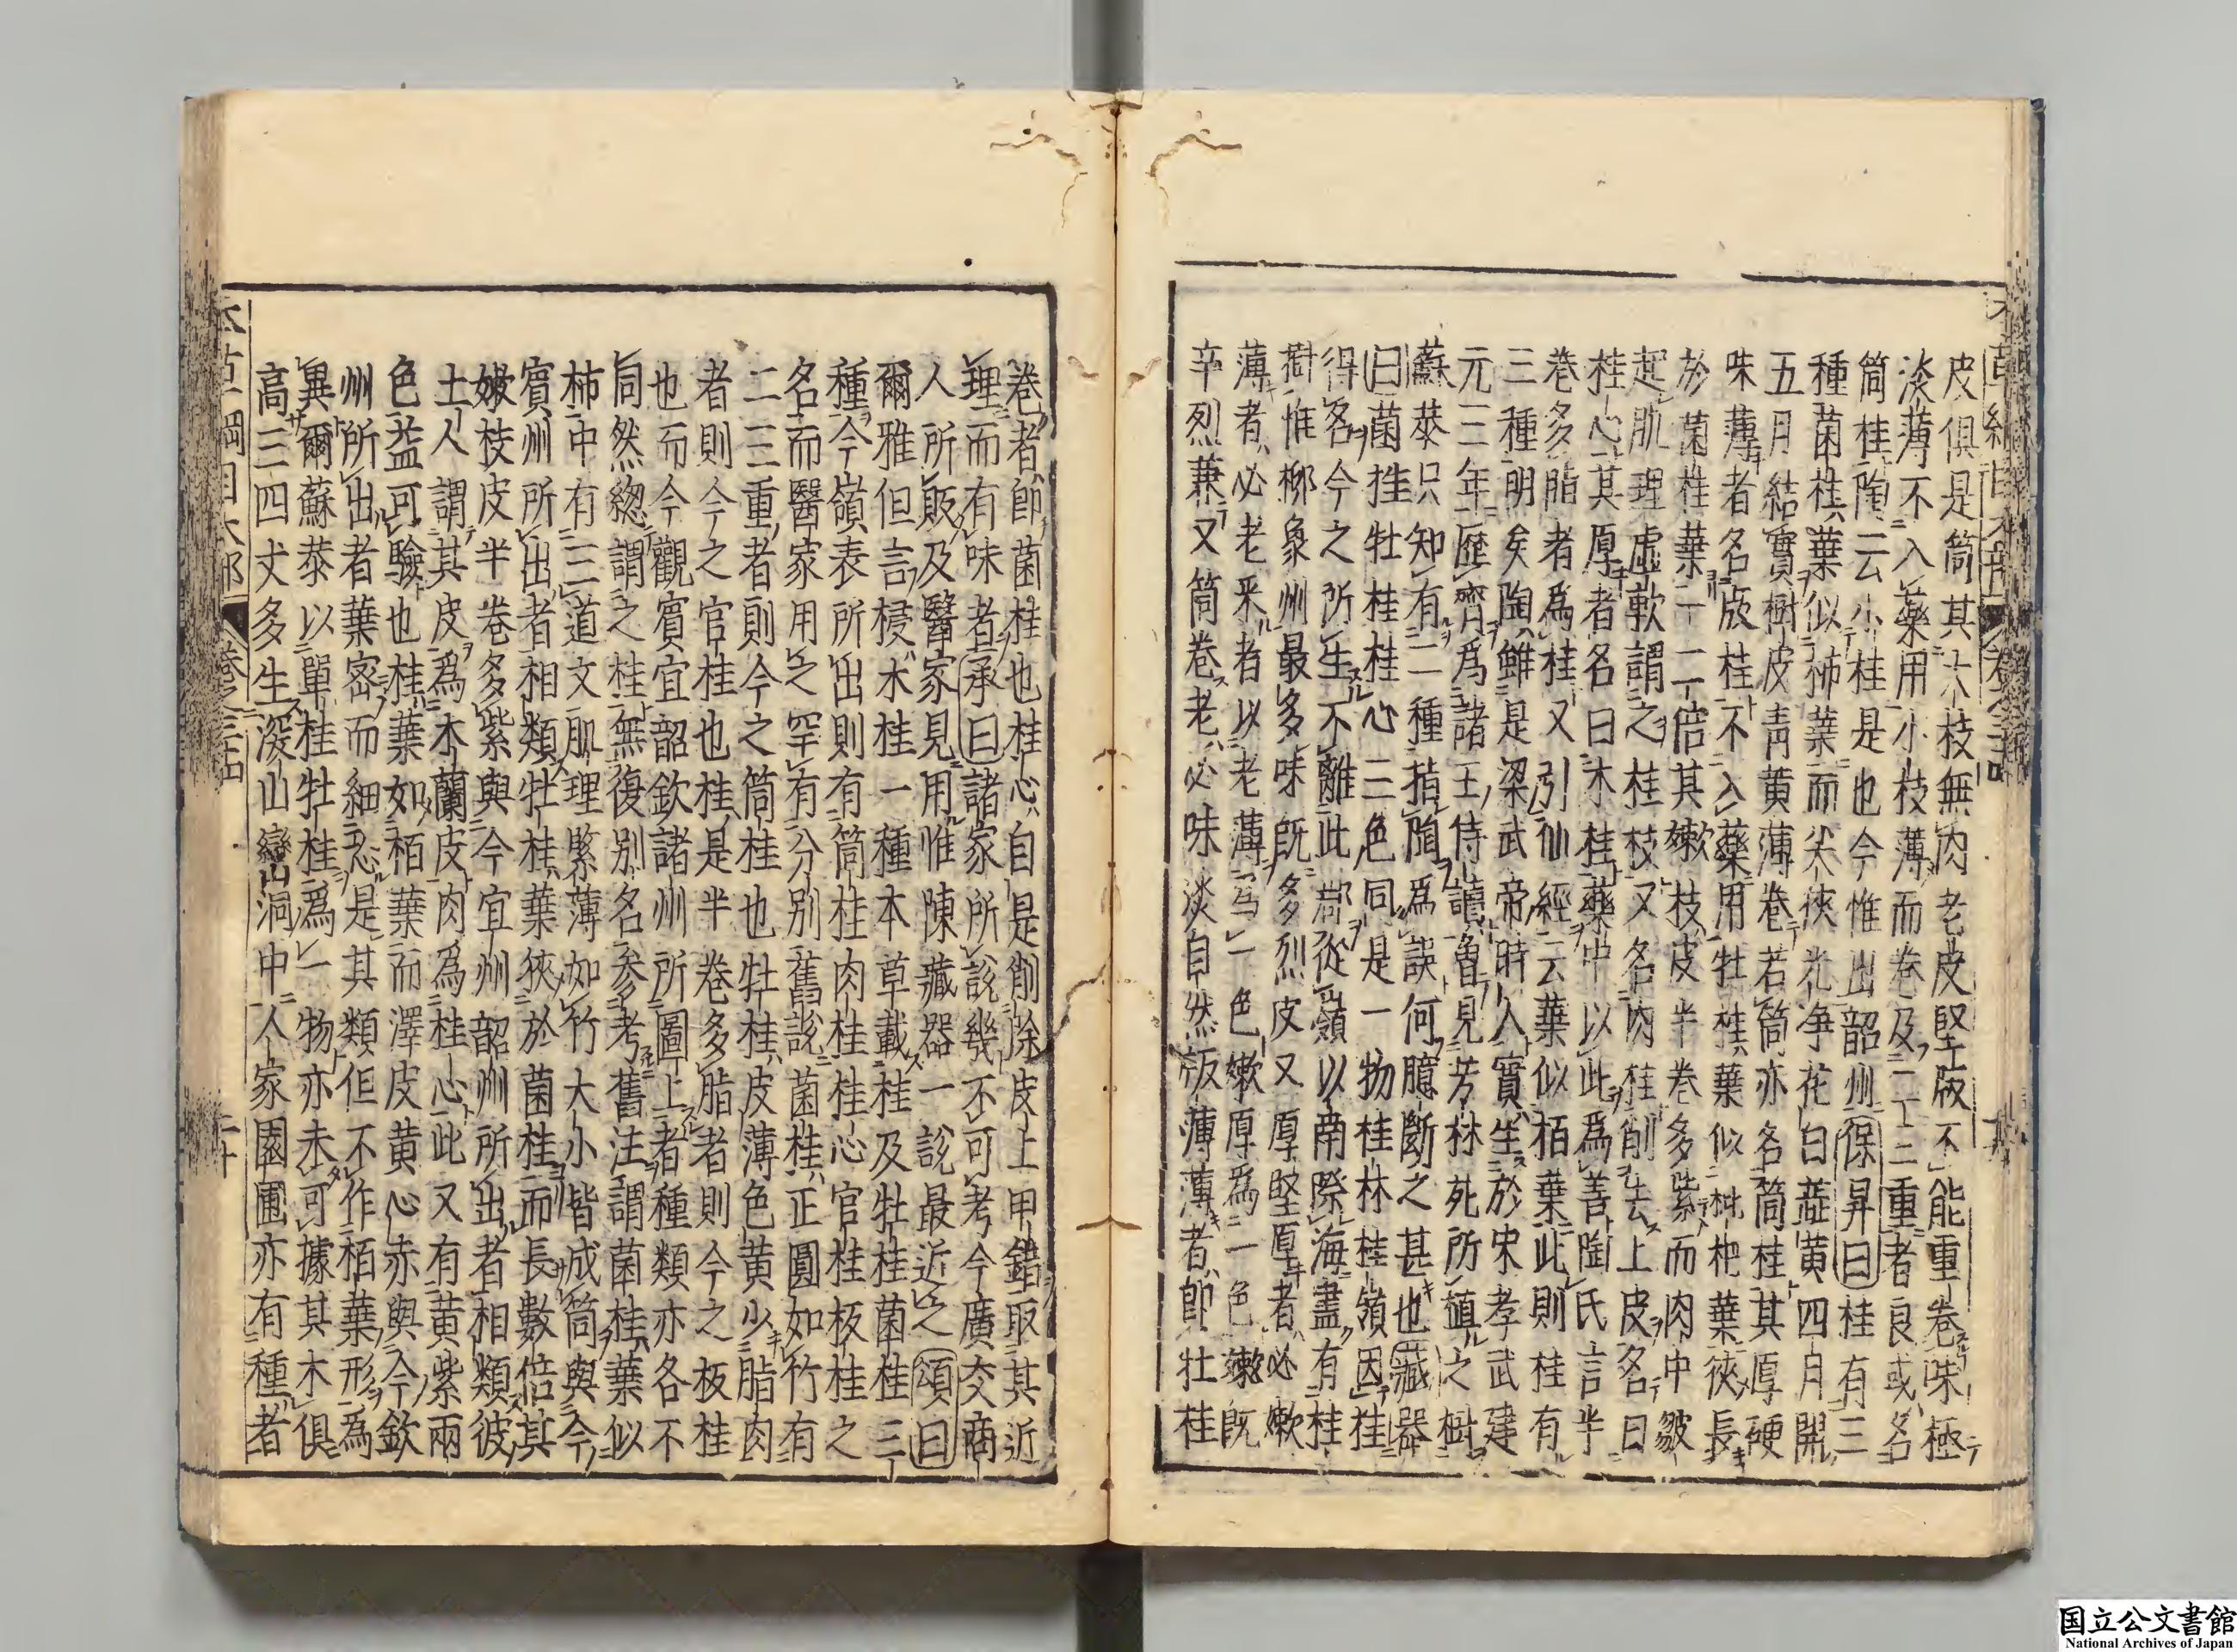 皮俱是筒其大枝無肉老皮堅版不能重卷味極
淡薄不入藥用小枝薄而卷及二三重者良或名
筒桂陶云小桂是也今惟出韶州保昇曰桂有三
種菌桂葉似柿葉而尖狹光淨花白蕋黄四月開
五月結實樹皮青黄薄卷若筒亦名筒桂其厚硬
味薄者名版桂不入藥用牡桂葉似枇杷葉狹長
於菌桂葉一二倍其嫩枝皮半卷多紫而肉中皺
起肌理虚軟謂之桂枝又名肉桂削去上皮名曰
桂心其厚者名曰木桂藥中以此爲善陶氏言半
卷多脂者爲桂又引仙經云葉似栢葉此則桂有
三種明矣陶雖是梁武帝時人實生於宋孝武建
元二年歷齊爲諸王侍讀曾見芳林苑所植之樹
蘇恭只知有二種指陶爲誤何臆斷之甚也藏器
曰菌桂牡桂桂心三色同是一物桂林桂嶺因桂
得名今之所生不離此郡從嶺以南際海盡有桂
樹惟柳象州最多味既多烈皮又厚堅厚者必嫩
薄者必老采者以老薄爲一色嫩厚爲一色嫩既
辛烈兼又筒卷老必味淡自然版薄薄者即牡桂
卷者即菌桂也桂心自是削除皮上甲錯取其近
理而有味者承曰諸家所說幾不可考今廣交商
人所販及醫家見用惟陳藏器一說最近之頌曰
爾雅但言梫木桂一種本草載桂及牡桂菌桂三
種今嶺表所出則有筒桂肉桂桂心官桂板桂之
名而醫家用之罕有分别舊說菌桂正圓如竹有
二三重者則今之筒桂也牡桂皮薄色黄少脂肉
者則今之官桂也桂是半卷多脂者則今之板桂
也而今觀賓宜韶欽諸州所圖上者種類亦各不
同然緫謂之桂無復别名參考舊注謂菌桂葉似
柿中有三道文肌理緊薄如竹大小皆成筒與今
賓州所出者相類牡桂葉狹於菌桂而長數倍其
嫩枝皮半卷多紫與今宜州韶州所出者相類彼
土人謂其皮爲木蘭皮肉為桂心此又有黄紫兩
色益可驗也桂葉如栢葉而澤皮黄心赤與今欽
州所出者葉密而細恐是其類但不作栢葉形為
異爾蘇恭以單桂牡桂爲一物亦未可據其木俱
高三四丈多生深山蠻洞中人家園圃亦有種者
本草綱目木部 卷之三十四 二十
国立公文書館
National Archives of Japan